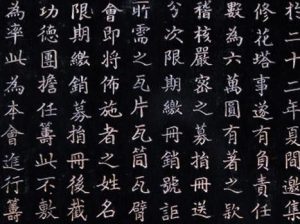 二十二年夏邀集
修花塔事遂有負責任
數為六萬圓有著之款
稽核嚴密之募捐冊送
分次限期繳冊銷號詎
所需之瓦片瓦筒瓦臂
會即將佈施者之姓名
限期繳銷募捐冊後截
功德團擔任籌此不敷
為率此為本會進行籌